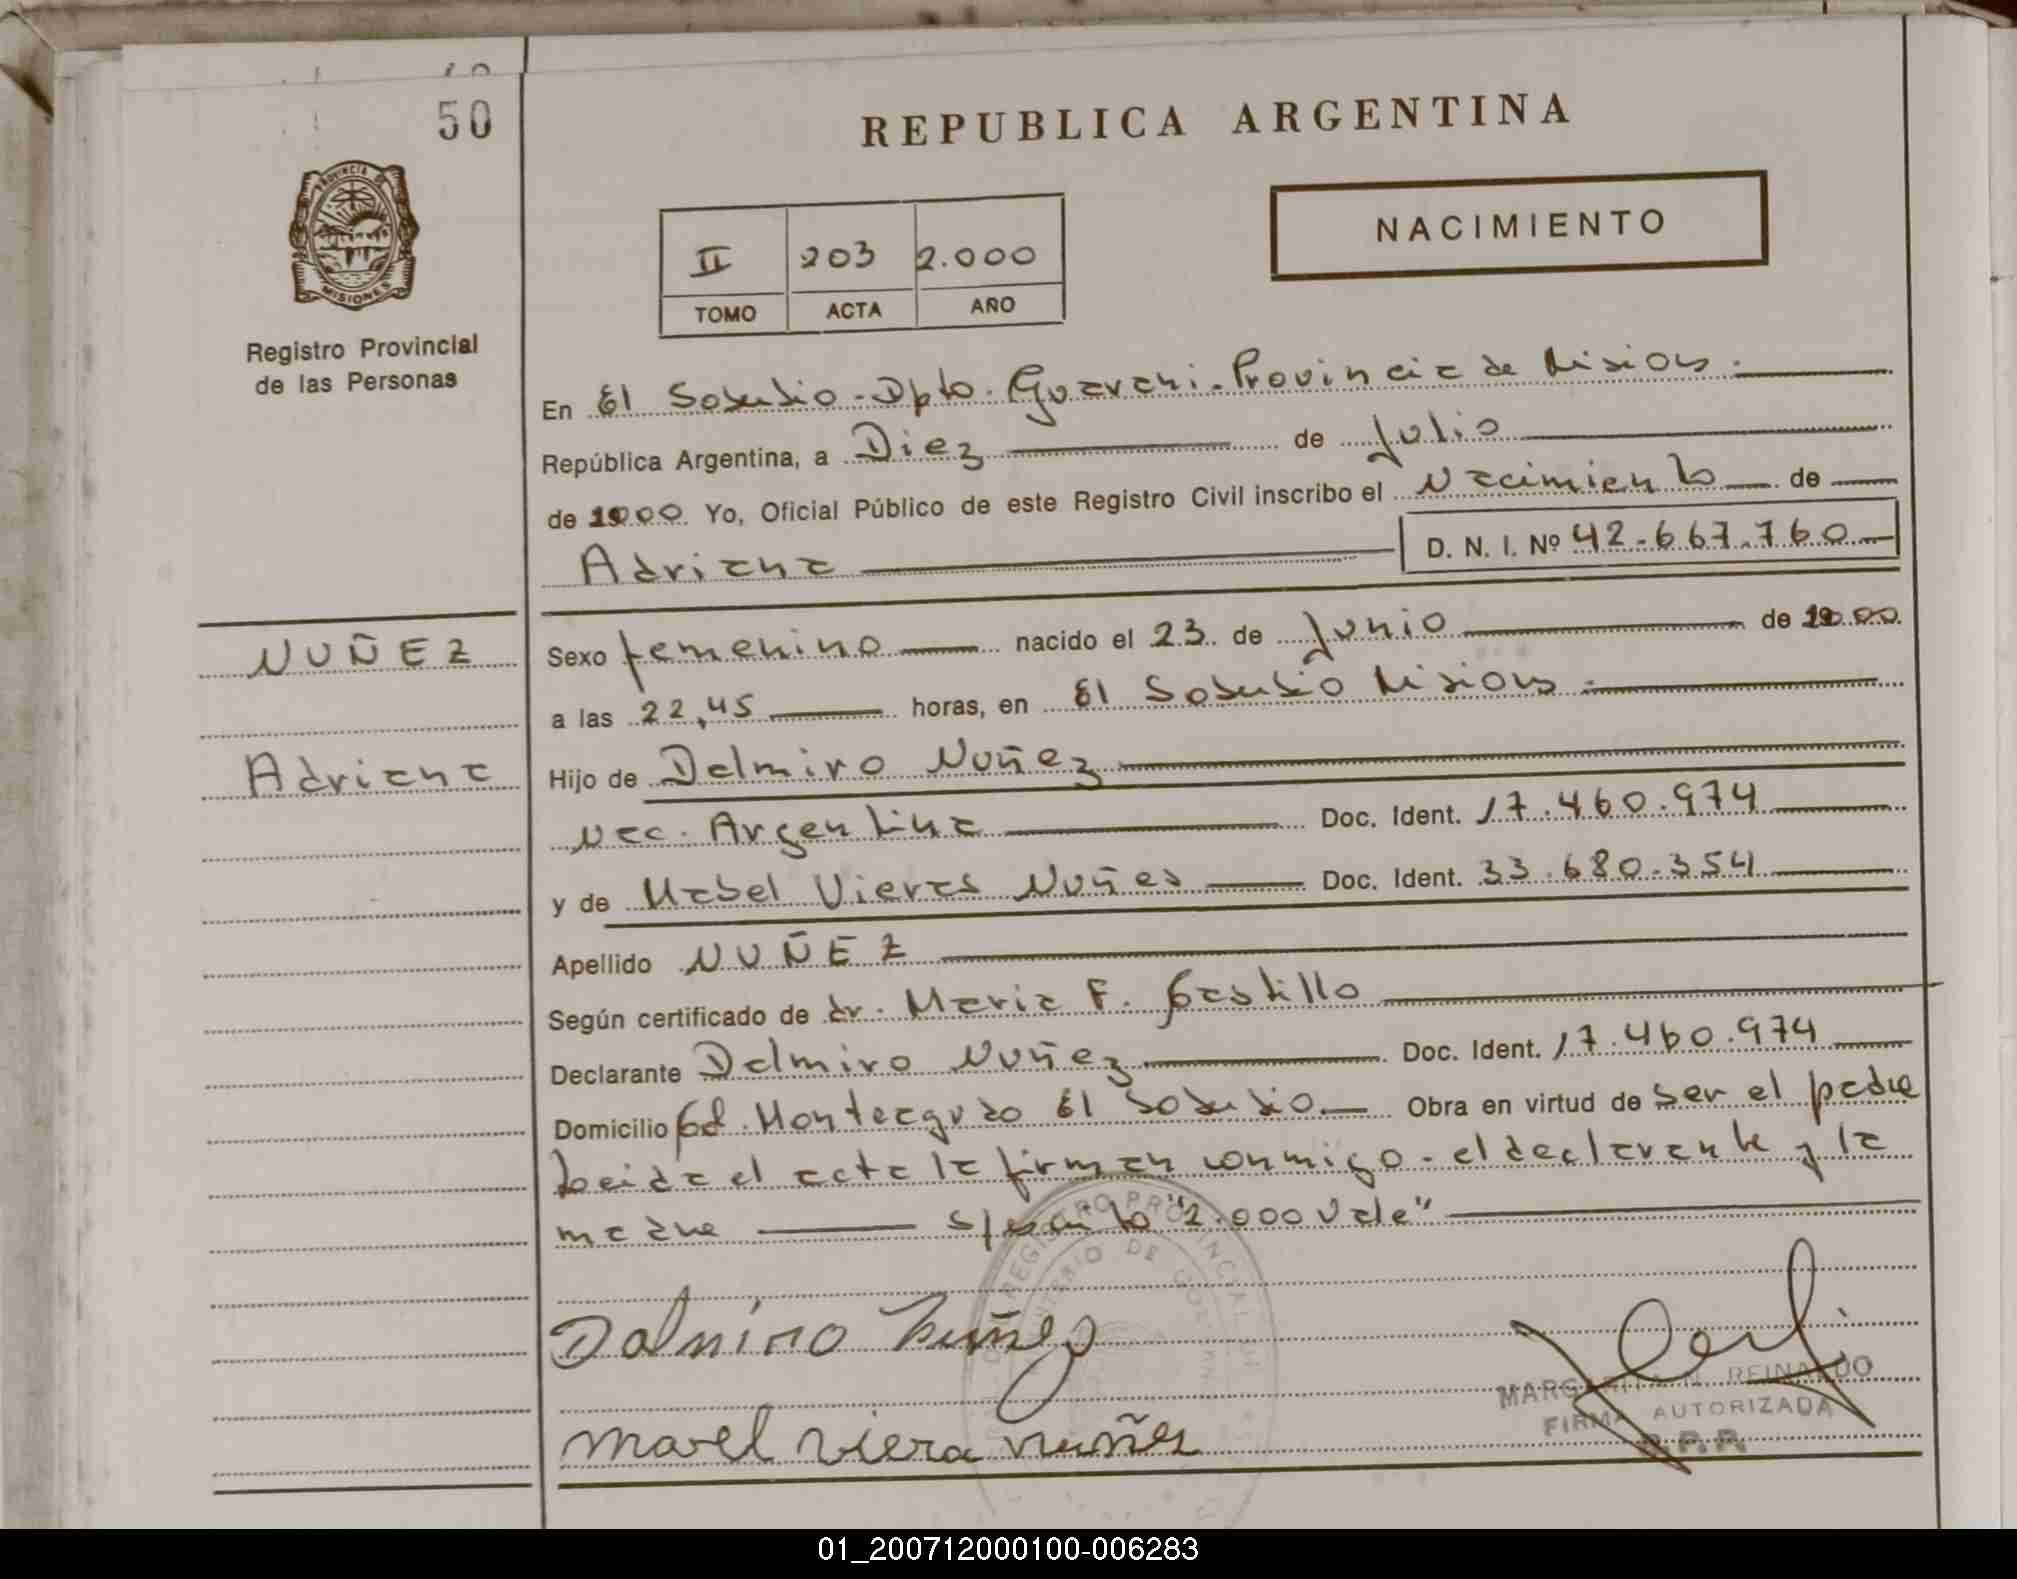 50
REPUBLICA ARGENTINA
PROVINCIA DE
MISIONES
NACIMIENTO
II 203 2.000
TOMO ACTA AÑO
Registro Provincial
de las Personas
En El Soberbio - Dpto. Guarani - Provincia de Misiones.
República Argentina, a Diez de Julio
de 2000 Yo, Oficial Público de este Registro Civil inscribo el Nacimiento de
Adriana D. N. I. Nº 42.667.760
NUÑEZ
Adriana
Sexo femenino nacido el 23 de Junio de 2000
a las 22,45 horas, en El Soberbio Misiones.
Hijo de Delmiro Nuñez
Nac. Argentina Doc. Ident. 17.460.974
y de Mabel Vieras Nuñes Doc. Ident. 33.680.354
Apellido NUÑEZ
Según certificado de dr. Maria F. Castillo
Declarante Delmiro Nuñez Doc. Ident. 17.460.974
Domicilio Cd. Monteagudo El Soberbio Obra en virtud de ser el padre
Leida el acta la firman conmigo - el declarante y la
madre "2.000 Vale"
REGISTRO PROVINCIAL
MINISTERIO DE GOBIERNO
Delmiro Nuñez
Mavel viera nuñez
MARGARITA N. REINALDO
FIRMA AUTORIZADA
R.P.P.
01_200712000100-006283